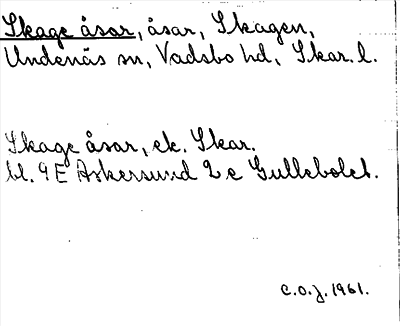 Skage åsar, åsar, Skagen,
Undenäs sn, Vadsbo hd, Skar. l.
Skage åsar, ek. Skar.
bl. 9E Askersund 2 e Gullebolet.
C.O.J. 1961.